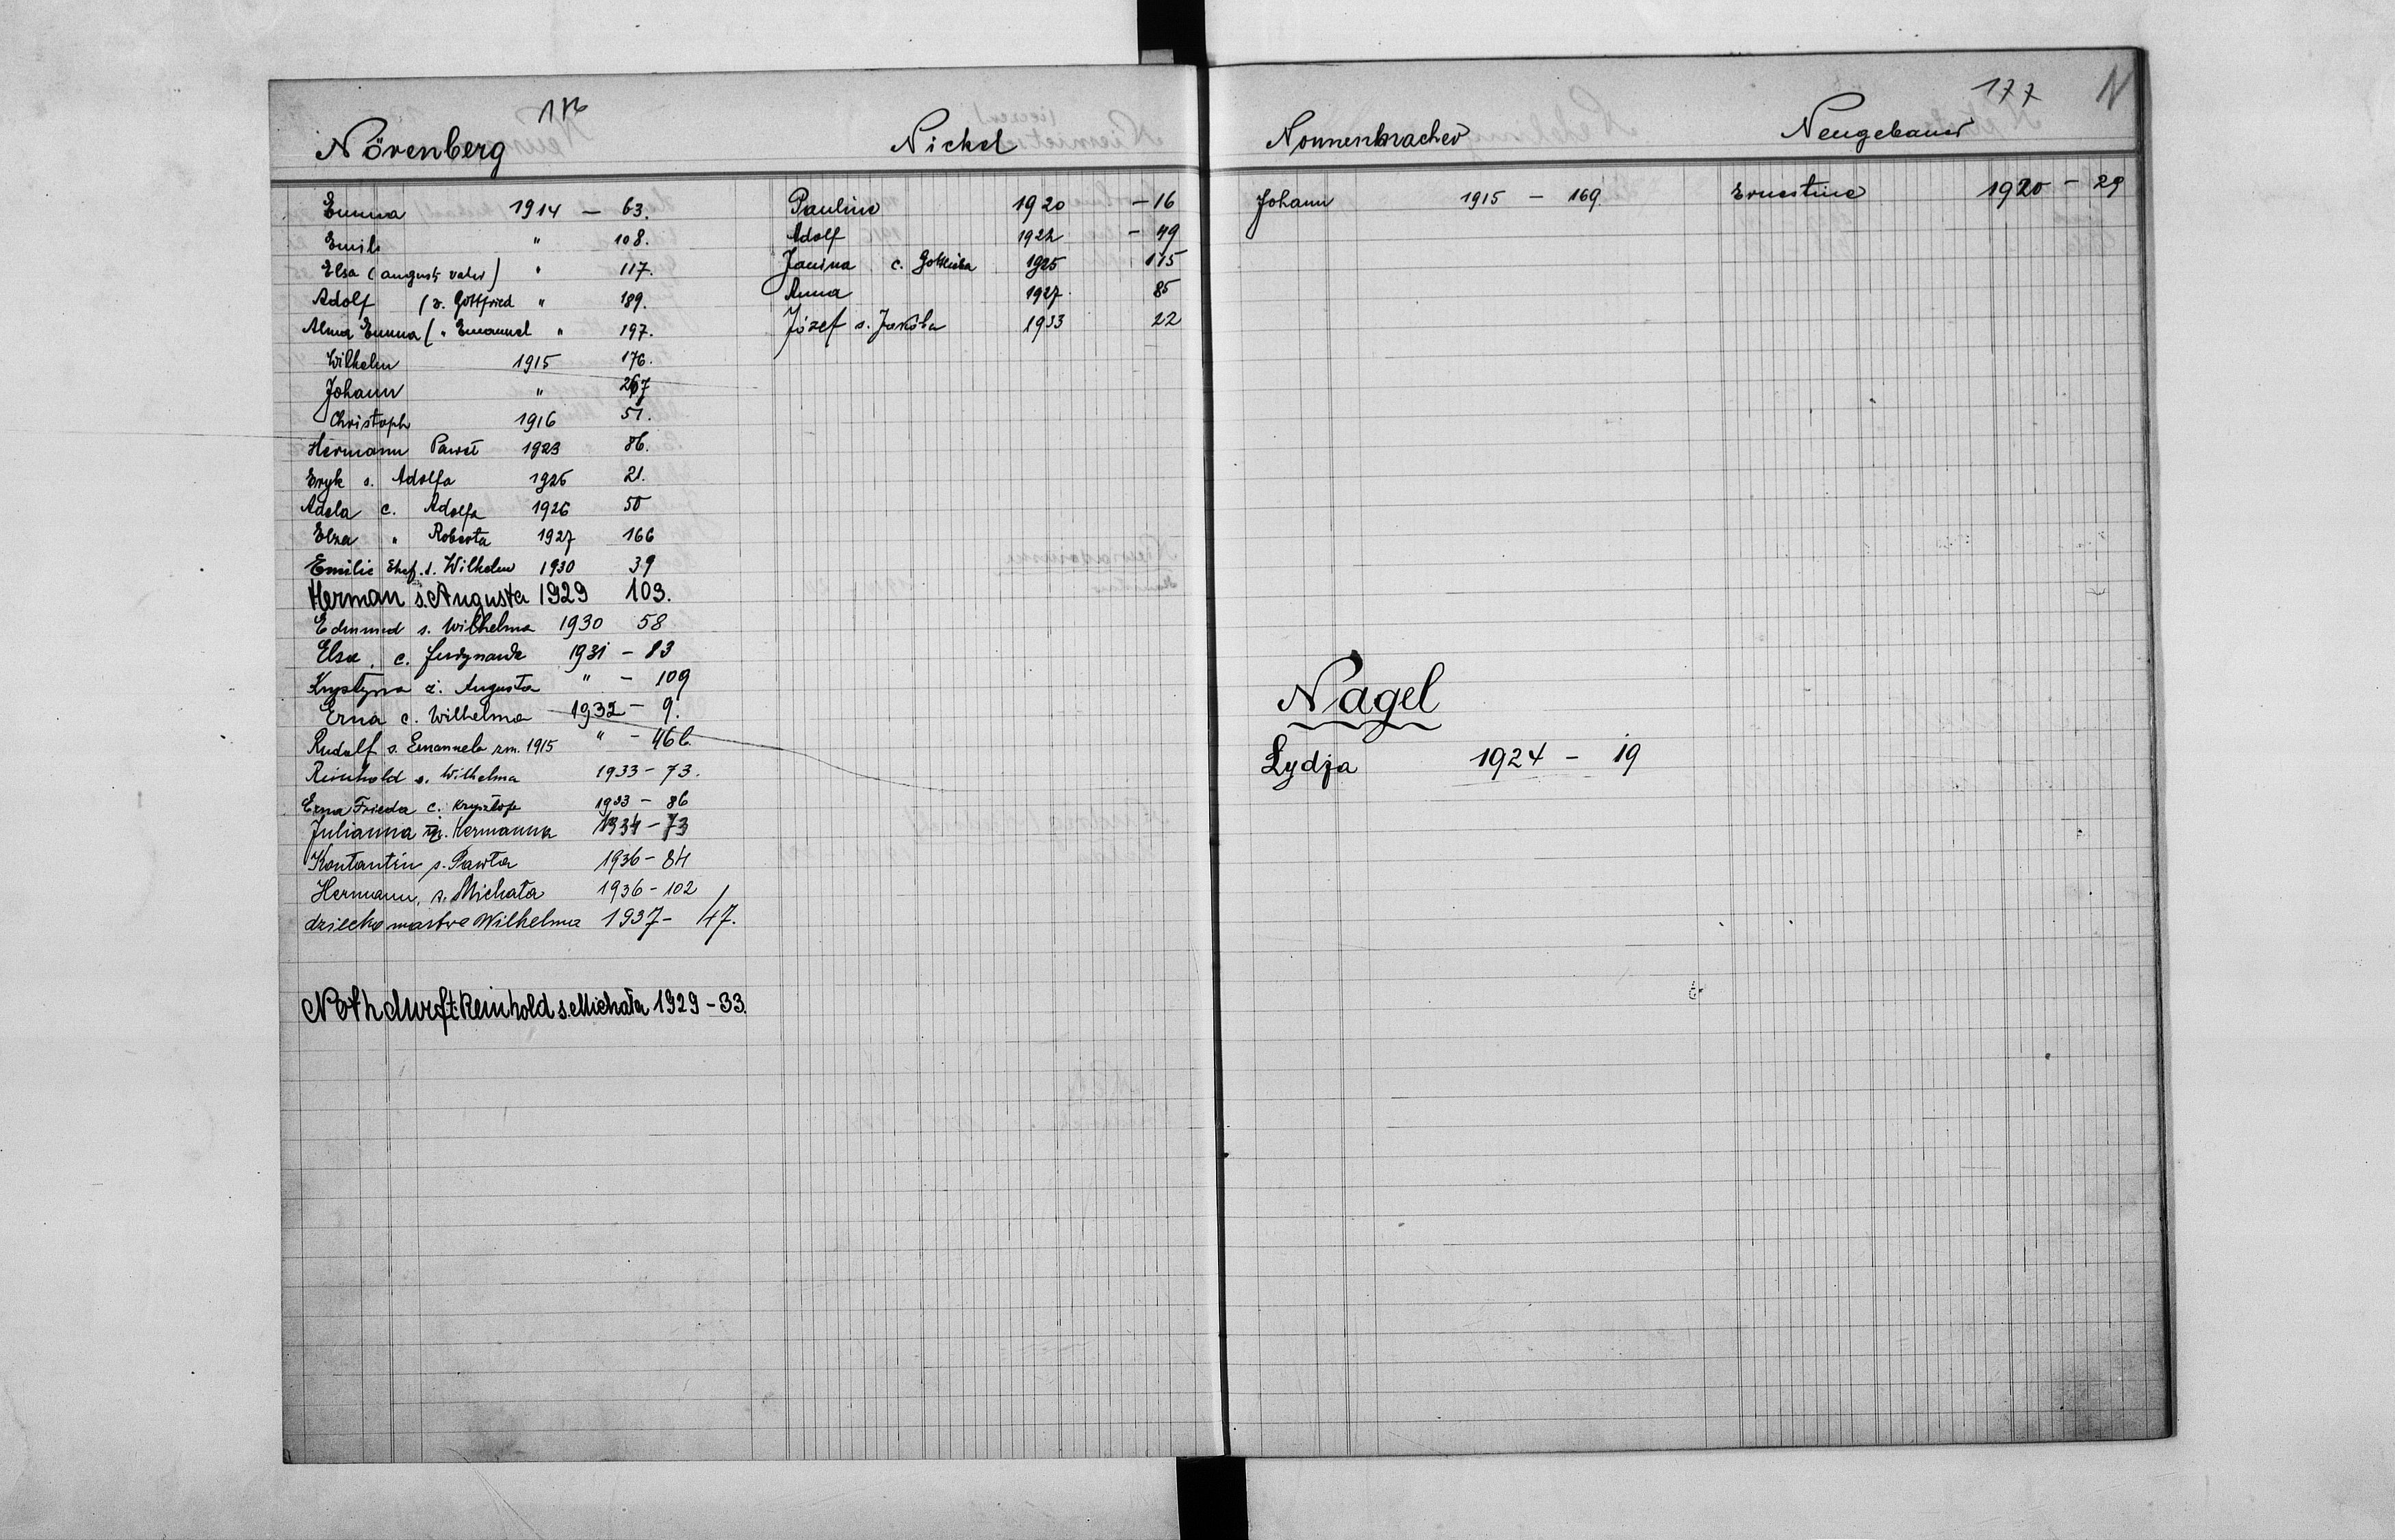 176
Nörenberg
Emma 1914 — 63.
Emil " 108.
Elsa (August vater) " 117.
Adolf (s. Gottfried " 189.
Alma Emma (" Emanuel " 197.
Wilhelm 1915 176.
Johann " 267
Christoph 1916 51.
Hermann Paweł 1923 86.
Eryk s. Adolfa 1926 21.
Adela c. Adolfa 1926 50
Elza " Roberta 1927 166
Emilie Ehef. d. Wilhelm 1930 39
Herman s. Augusta 1929 103.
Edmund s. Wilhelma 1930 58
Elsa c. Ferdynanda 1931 – 83
Krystyna ż. Augusta " – 109
Erna c. Wilhelma 1932 – 9.
Rudolf s. Emanuela zm. 1915 " – 46b.
Reinhold s. Wilhelma 1933 – 73.
Erna Frieda c. Krysztofa 1933 – 86
Julianna ż. Hermanna 1934 – 73
Kontantin s. Pawła 1936 – 84
Hermann, s. Michała 1936 – 102
dziecko martwe Wilhelma 1937 – 47.
Nothdurft Reinhold s. Michała 1929 – 33.
Nickel
Pauline 1920 – 16
Adolf 1922 – 49
Janina c. Gottlieba 1925 175
Anna 1927 85
Józef s. Jakóba 1933 22
177 N
Nonnenmacher
Johann 1915 – 169.
Nagel
Lydja 1924 – 19
Neugebauer
Ernestine 1920 – 29